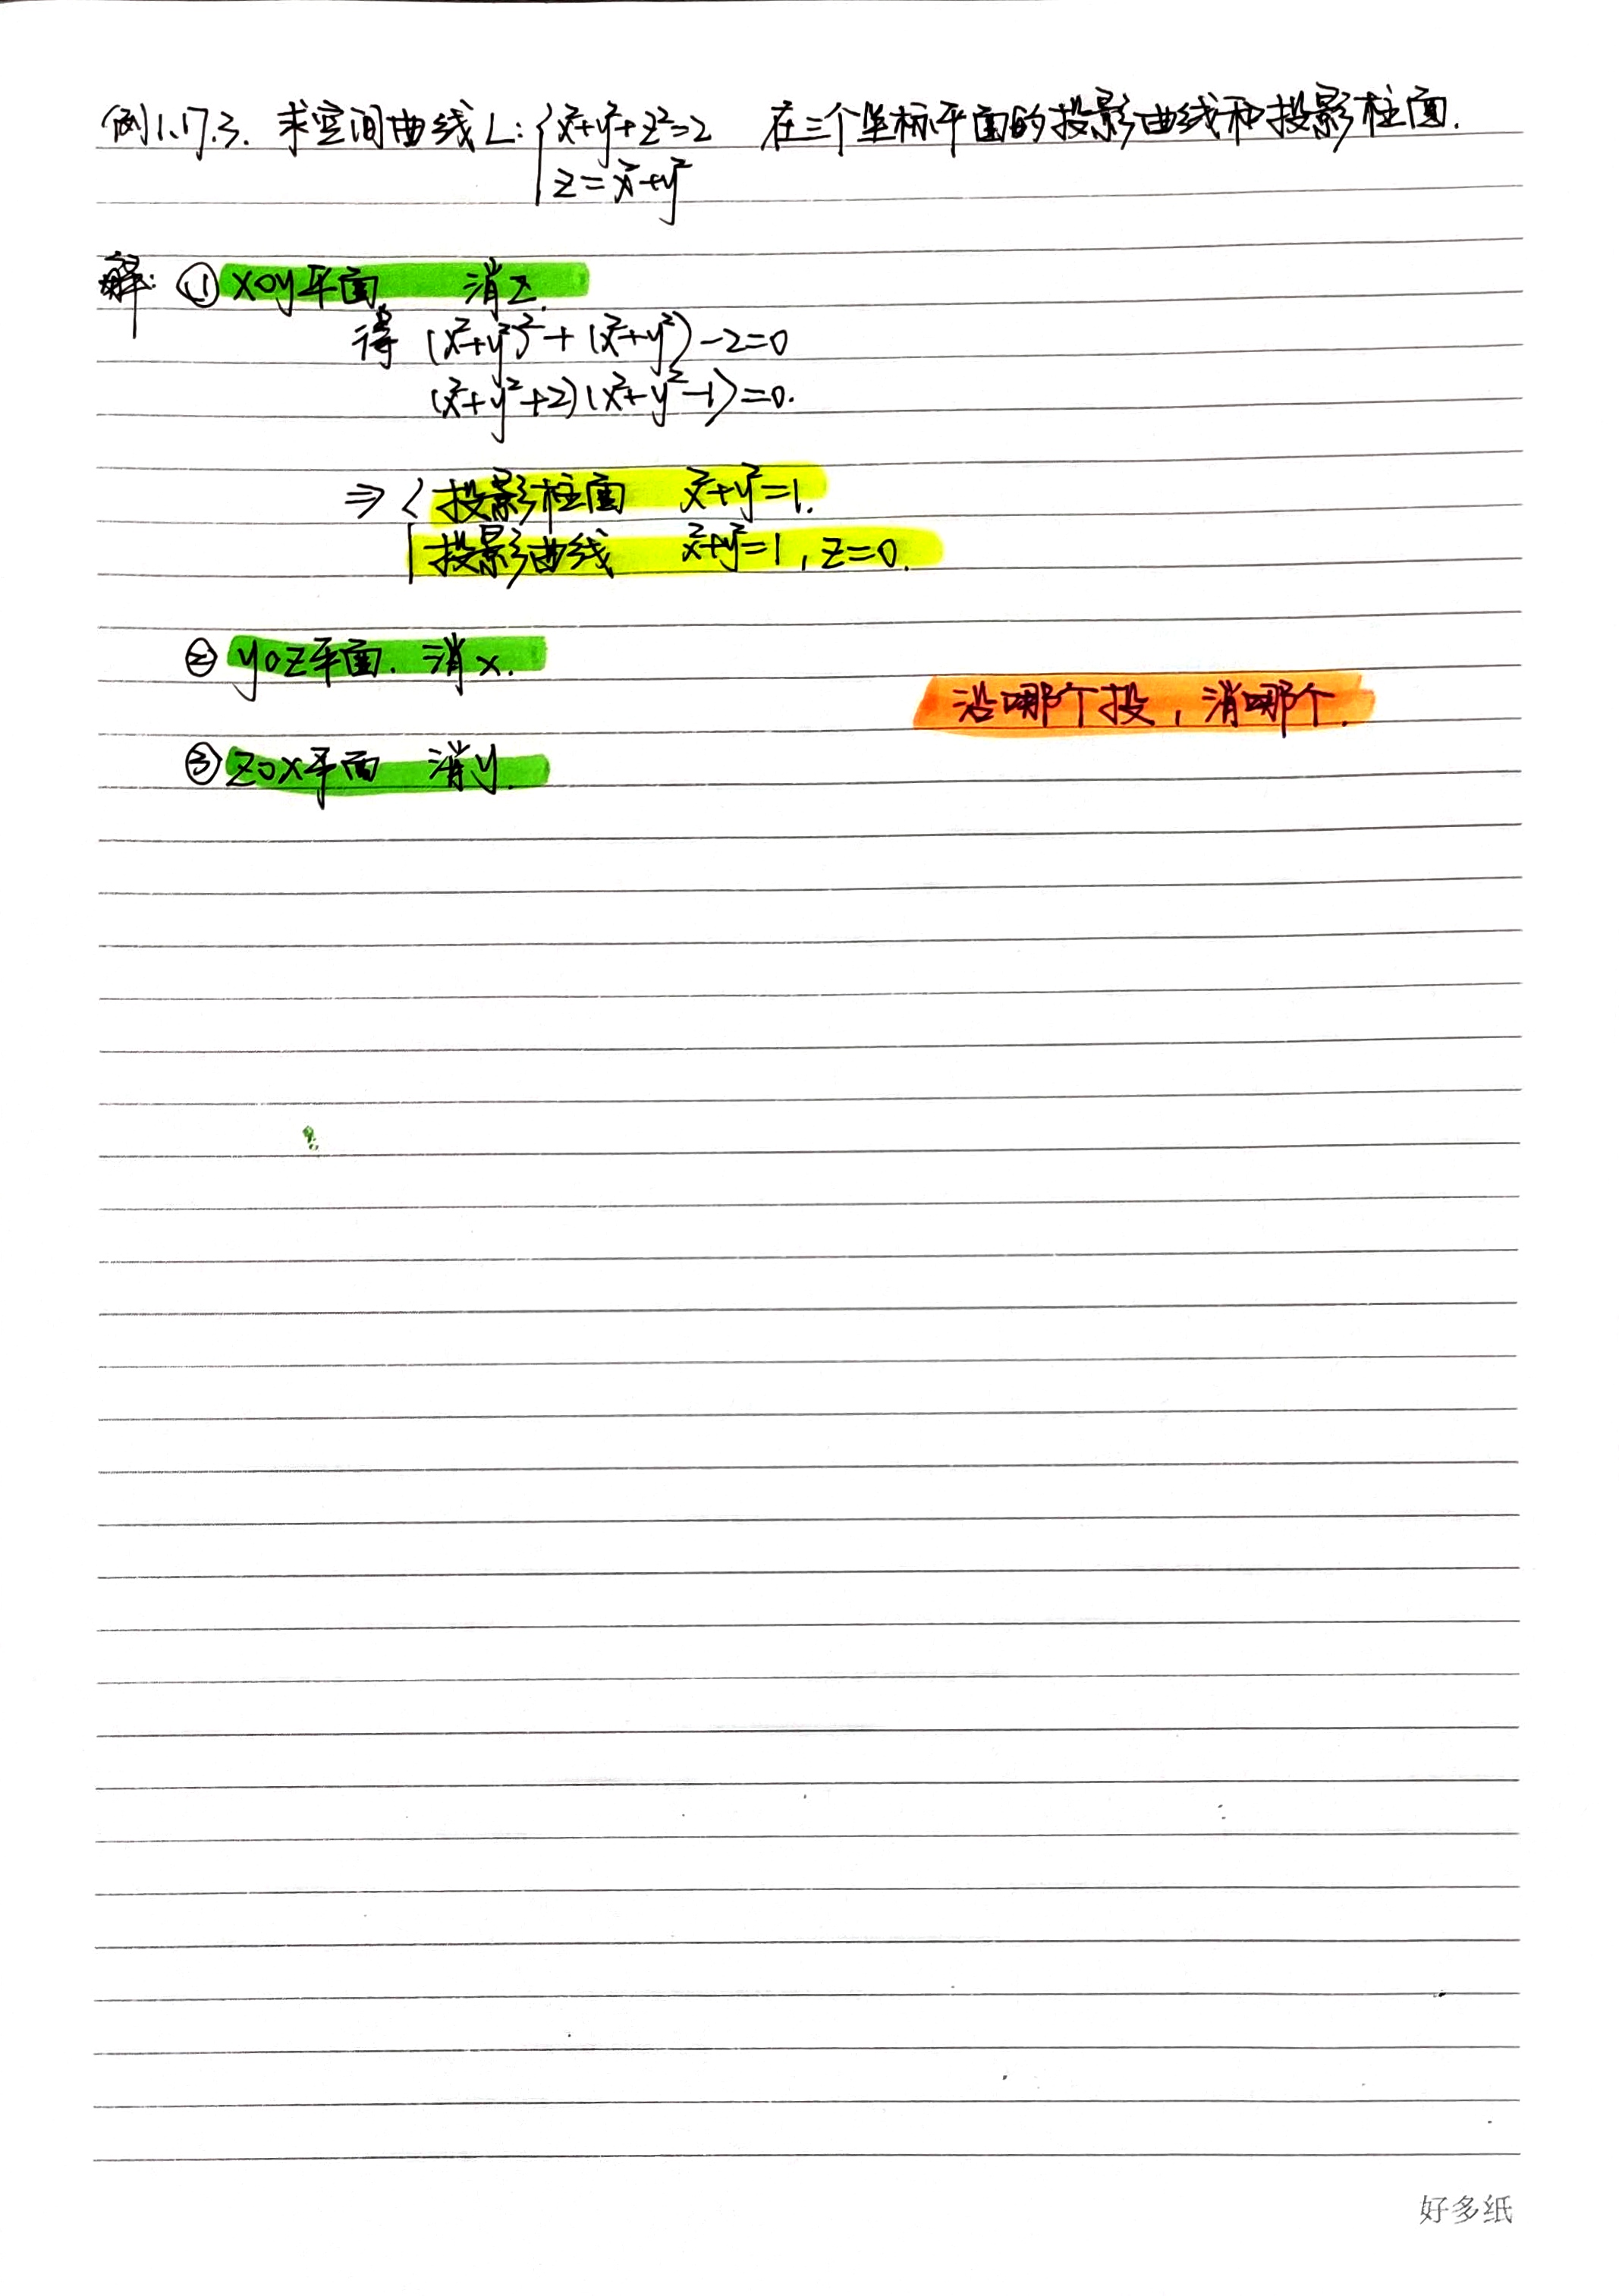 例1.7.3. 求空间曲线L:{x²+y²+z²=2 在三个坐标平面的投影曲线和投影柱面.
z=x²+y²
解: ① xoy平面, 消z.
得 (x²+y²)²+(x²+y²)-2=0
(x²+y²+2)(x²+y²-1)=0.
⇒{投影柱面 x²+y²=1.
投影曲线 x²+y²=1, z=0.
② yoz平面. 消x.
沿哪个投, 消哪个.
③ zox平面 消y.
好多纸